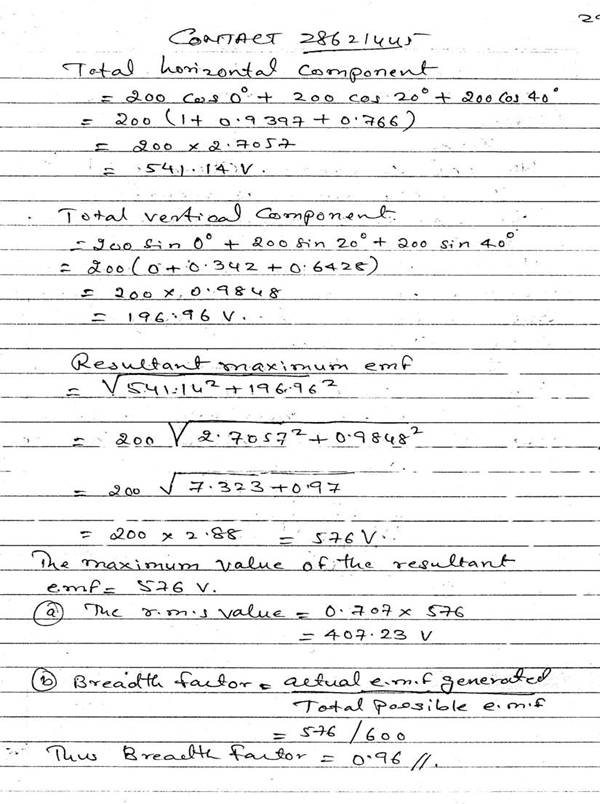 29
CONTACT 28621445
Total horizontal component
= 200 cos 0° + 200 cos 20° + 200 cos 40°
= 200 (1 + 0.9397 + 0.766)
= 200 × 2.7057
= 541.14 V.
Total vertical component.
= 200 sin 0° + 200 sin 20° + 200 sin 40°
= 200 (0 + 0.342 + 0.6428)
= 200 × 0.9848
= 196.96 V.
Resultant maximum emf
= √541.14² + 196.96²
= 200 √2.7057² + 0.9848²
= 200 √7.323 + 0.97
= 200 × 2.88 = 576 V.
The maximum value of the resultant
emf = 576 V.
(a) The r.m.s value = 0.707 × 576
= 407.23 V
(b) Breadth factor = actual e.m.f generated
Total possible e.m.f
= 576 / 600
Thus Breadth factor = 0.96 //.